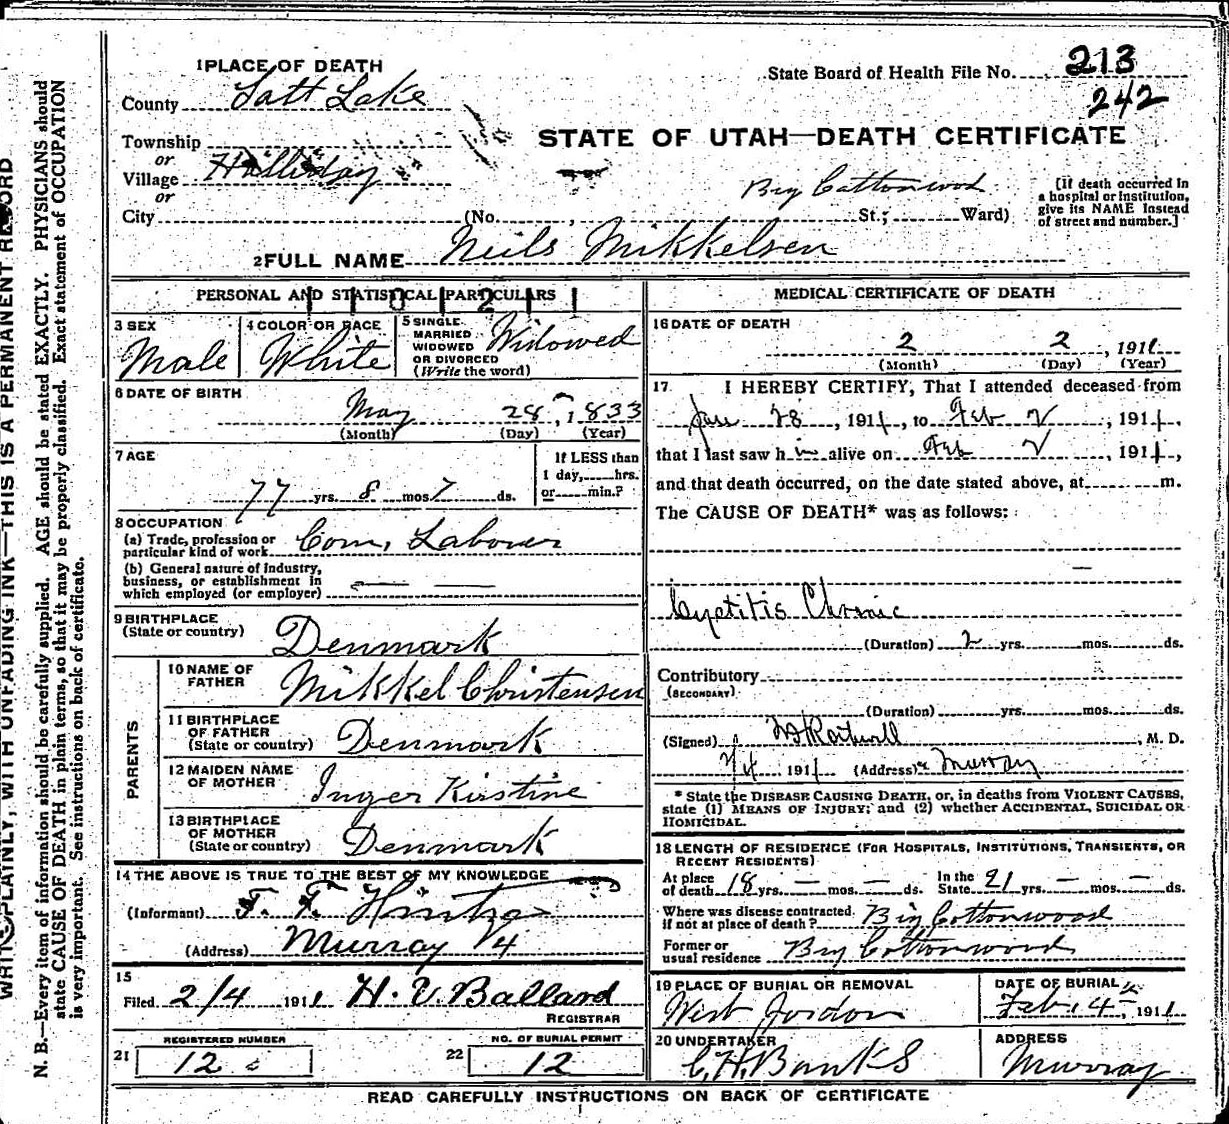 1 PLACE OF DEATH
State Board of Health File No. 213
242
County Salt Lake
STATE OF UTAH—DEATH CERTIFICATE
Township
or
Village Holliday
or
Big Cottonwood
City (No. , St.; Ward)
[If death occurred in a hospital or institution, give its NAME instead of street and number.]
2 FULL NAME Neils Mikkelsen
PERSONAL AND STATISTICAL PARTICULARS
3 SEX Male
4 COLOR OR RACE White
5 SINGLE MARRIED WIDOWED OR DIVORCED (Write the word) Widowed
6 DATE OF BIRTH
May 28, 1833
(Month) (Day) (Year)
7 AGE
77 yrs. 8 mos 7 ds.
If LESS than 1 day, hrs. or min.?
8 OCCUPATION
(a) Trade, profession or particular kind of work Com, Laborer
(b) General nature of industry, business, or establishment in which employed (or employer)
9 BIRTHPLACE (State or country) Denmark
PARENTS
10 NAME OF FATHER Mikkel Christensen
11 BIRTHPLACE OF FATHER (State or country) Denmark
12 MAIDEN NAME OF MOTHER Inger Kirstine
13 BIRTHPLACE OF MOTHER (State or country) Denmark
14 THE ABOVE IS TRUE TO THE BEST OF MY KNOWLEDGE
(Informant) F. F. Hintze
(Address) Murray #4
15
Filed 2/4 1911 H. V. Ballard
REGISTRAR
21 REGISTERED NUMBER 12
22 NO. OF BURIAL PERMIT 12
MEDICAL CERTIFICATE OF DEATH
16 DATE OF DEATH
2 2, 1911
(Month) (Day) (Year)
17 I HEREBY CERTIFY, That I attended deceased from
Jan 28, 1911, to Feb 2, 1911,
that I last saw him alive on Feb 2, 1911,
and that death occurred, on the date stated above, at m.
The CAUSE OF DEATH* was as follows:
Cystitis Chronic
(Duration) 2 yrs. mos. ds.
Contributory
(SECONDARY)
(Duration) yrs. mos. ds.
(Signed) , M. D.
2/4 1911 (Address) Murray
* State the DISEASE CAUSING DEATH, or, in deaths from VIOLENT CAUSES, state (1) MEANS OF INJURY; and (2) whether ACCIDENTAL, SUICIDAL OR HOMICIDAL.
18 LENGTH OF RESIDENCE (FOR HOSPITALS, INSTITUTIONS, TRANSIENTS, OR RECENT RESIDENTS)
At place of death 18 yrs. — mos. — ds. In the State 21 yrs. — mos. — ds.
Where was disease contracted, if not at place of death? Big Cottonwood
Former or usual residence Big Cottonwood
19 PLACE OF BURIAL OR REMOVAL West Jordon
DATE OF BURIAL Feb. 4, 1911
20 UNDERTAKER C. H. Banks
ADDRESS Murray
READ CAREFULLY INSTRUCTIONS ON BACK OF CERTIFICATE
WRITE PLAINLY, WITH UNFADING INK—THIS IS A PERMANENT RECORD
N. B.—Every item of information should be carefully supplied. AGE should be stated EXACTLY. PHYSICIANS should
state CAUSE OF DEATH in plain terms, so that it may be properly classified. Exact statement of OCCUPATION
is very important. See instructions on back of certificate.